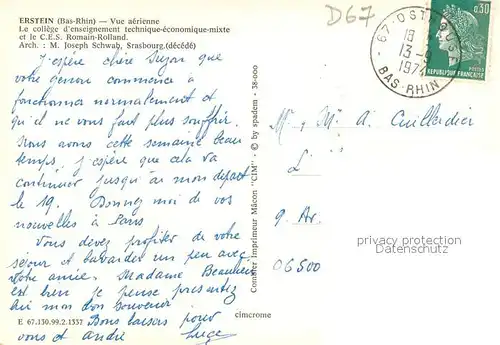 ERSTEIN (Bas-Rhin) — Vue aérienne
Le collège d'enseignement technique-économique-mixte
et le C.E.S. Romain-Rolland.
Arch. : M. Joseph Schwab, Strasbourg.(décédé)
D67
67-OST
18
13-9
1974
BAS-RHIN
0,30
POSTES
REPUBLIQUE FRANÇAISE
J'espère chère Suzon que
votre genou commence à
fonctionner normalement et
qu'il ne vous fait plus souffrir,
nous avons cette semaine beau
temps, j'espère que cela va
continuer jusqu'à mon départ
le 19. Donnez moi de vos
nouvelles à Paris
Vous devez profiter de votre
séjour et bavarder un peu avec
votre amie. Madame
est bien je pense presentez
lui mon bon souvenir
Bons baisers pour
vous et andré
Combier Imprimeur Mâcon "CIM" - © by spadem - 38-000
Mr, Mme A. Cuilledier
L
9. Av.
06500
privacy protection
Datenschutz
cimcrome
E 67.130.99.2.1337